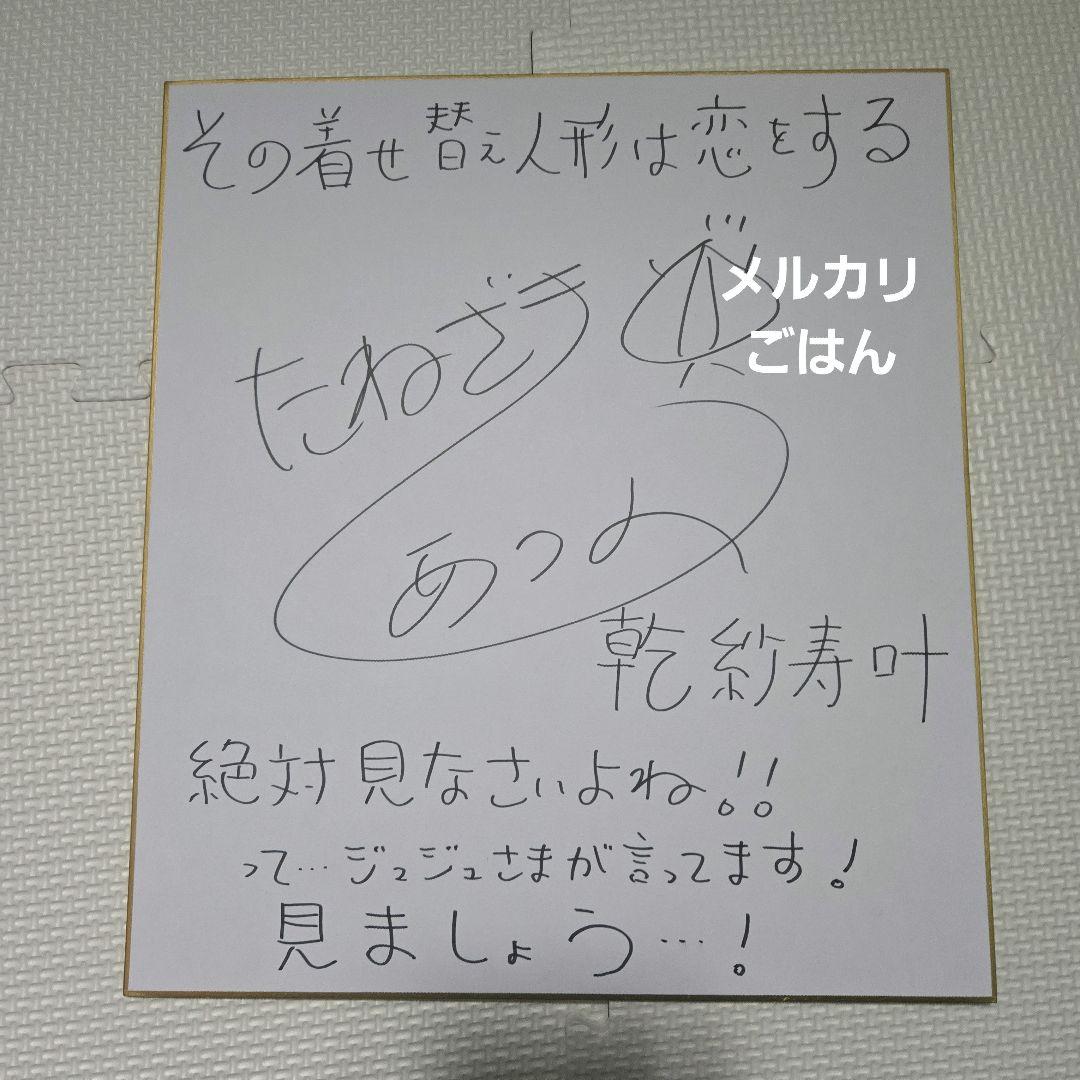 その着せ替え人形は恋をする
メルカリ
ごはん
たねざき
あつみ
乾紗寿叶
絶対見なさいよね!!
って…ジュジュさまが言ってます!
見ましょう…!